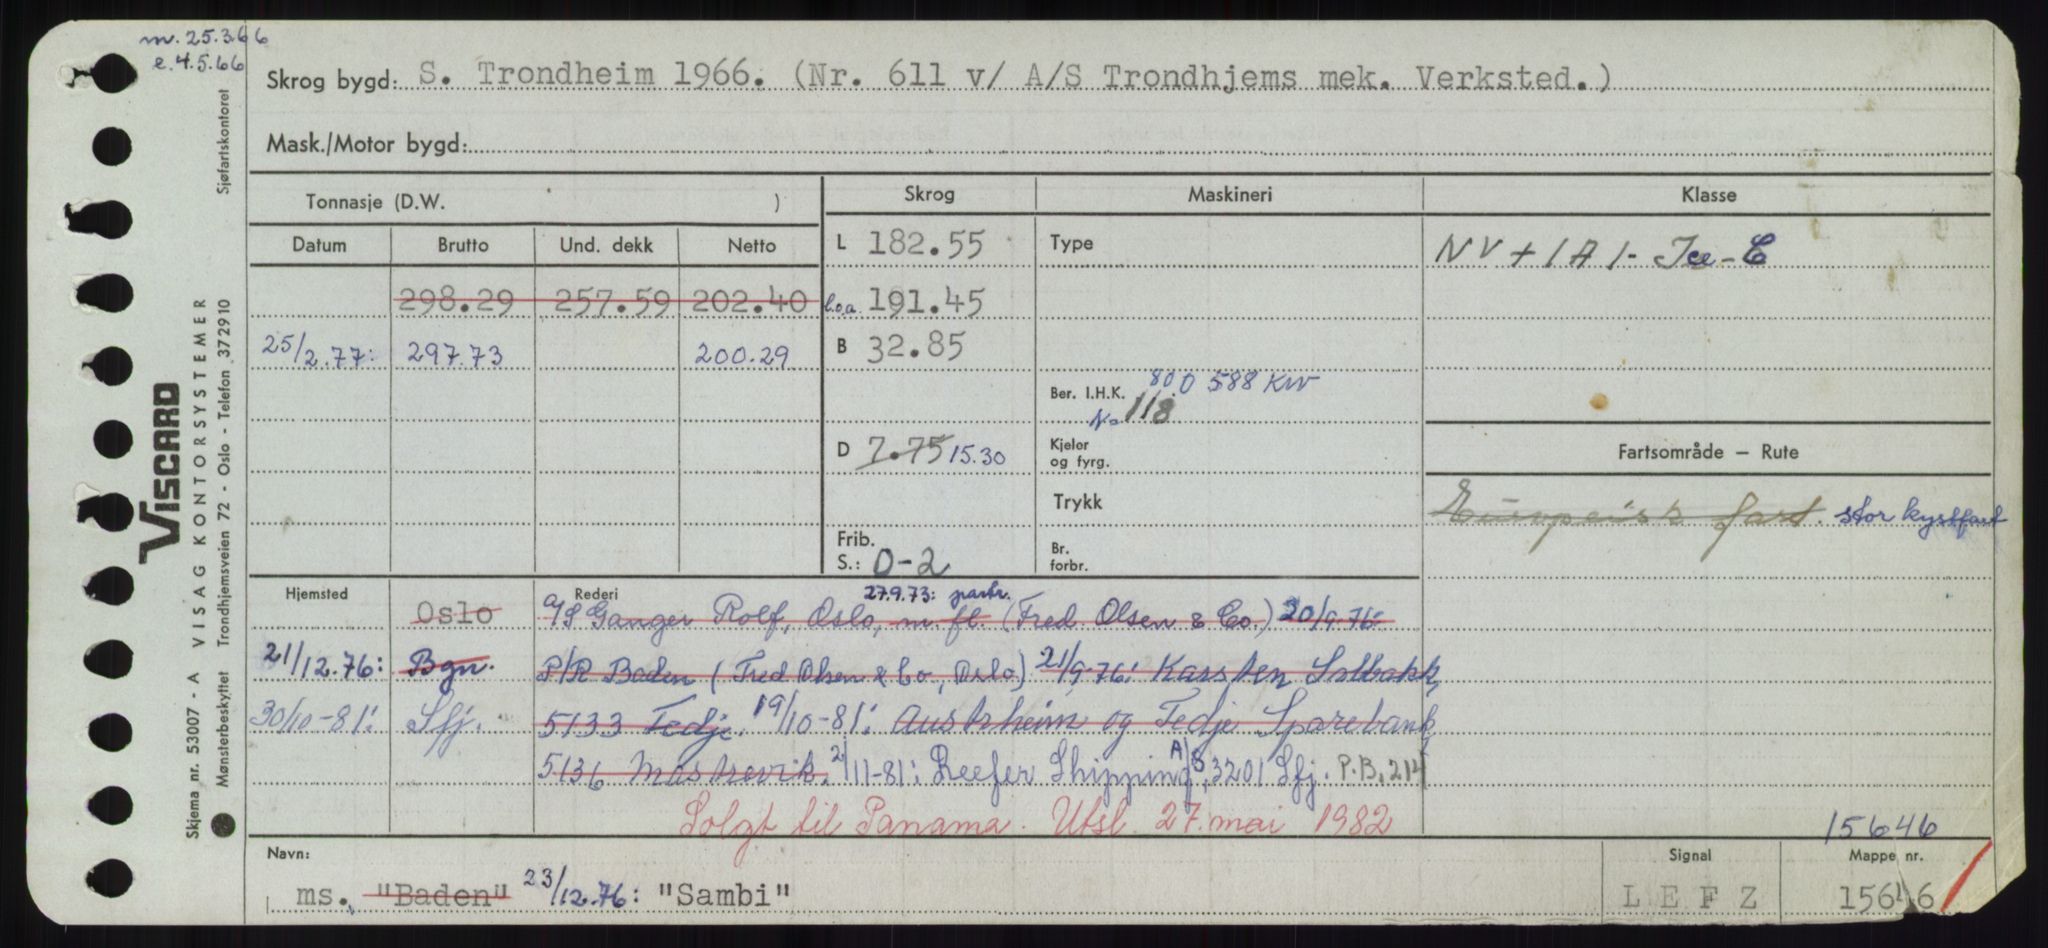 m. 25.3.66
e. 4.5.66
Skrog bygd: S. Trondheim 1966. (Nr. 611 v/ A/S Trondhjems mek. Verksted.)
Mask./Motor bygd:
Tonnasje (D.W. )
Skrog
Maskineri
Klasse
Datum Brutto Und. dekk Netto
L 182.55
Type
NV + 1A1 - Ice-C
298.29 257.59 202.40
l.o.a. 191.45
25/2.77: 297.73 200.29
B 32.85
Ber. I.H.K. 800 588 KW
N= 118
D 7.75 15.30
Kjeler og fyrg.
Fartsområde – Rute
Trykk
Europeisk fart. stor kystfart
Frib. S.: 0-2
Br. forbr.
Hjemsted Rederi 27.9.73: partr.
Oslo A/S Ganger Rolf, Oslo, m. fl. (Fred. Olsen & Co.) 20/9.76:
21/12.76: Bgn. P/R Baden (Fred Olsen & Co, Oslo) 21/9.76: Karsten Solbakk,
30/10-81: Sfj. 5133 Fedje. 19/10-81: Austrheim og Fedje Sparebank,
5136 Mastrevik. 2/11-81: Reefer Shipping A/S, 3201 Sfj. P.B. 214
Solgt til Panama. Utsl. 27. mai 1982
15646
Navn:
Signal
Mappe nr.
ms. "Baden" 23/12.76: "Sambi"
LEFZ
15646
Skjema nr. 53007 - A VISAG KONTORSYSTEMER
VISCARD
Mønsterbeskyttet Trondhjemsveien 72 - Oslo - Telefon 372910 Sjøfartskontoret